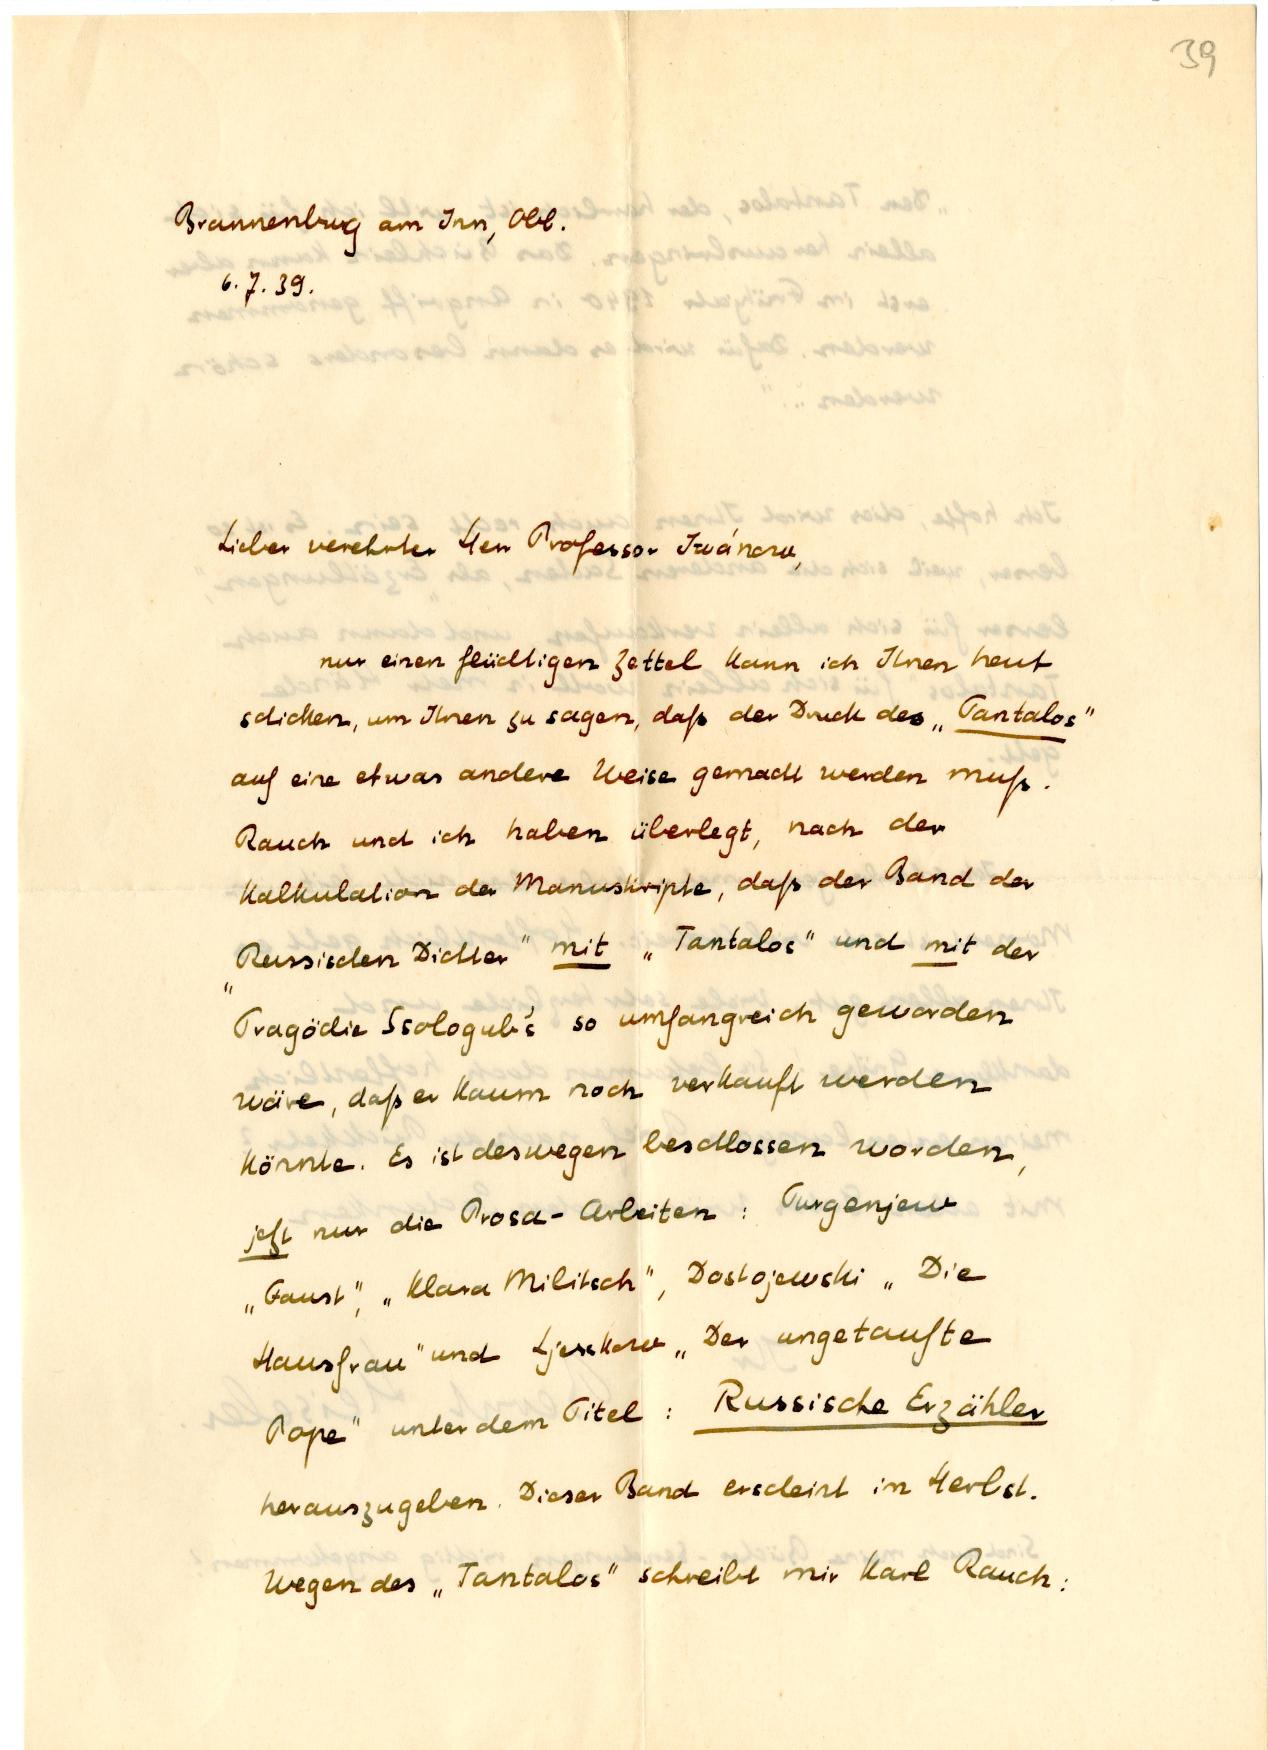 39
Brannenburg am Inn, Obb.
6.7.39.
Lieber verehrter Herr Professor Iwánow,
nur einen flüchtigen Zettel kann ich Ihnen heut
schicken, um Ihnen zu sagen, daß der Druck des „Tantalos“
auf eine etwas andere Weise gemacht werden muß.
Rauch und ich haben überlegt, nach der
Kalkulation der Manuskripte, daß der Band der
„Russischen Dichter“ mit „Tantalos“ und mit der
Tragödie Ssologub's so umfangreich geworden
wäre, daß er kaum noch verkauft werden
könnte. Es ist deswegen beschlossen worden,
jetzt nur die Prosa-Arbeiten: Turgenjew
„Faust“, „Klara Militsch“, Dostojewski „Die
Hausfrau“ und Ljesskow „Der ungetaufte
Pope“ unter dem Titel: Russische Erzähler
herauszugeben. Dieser Band erscheint im Herbst.
Wegen des „Tantalos“ schreibt mir Karl Rauch: